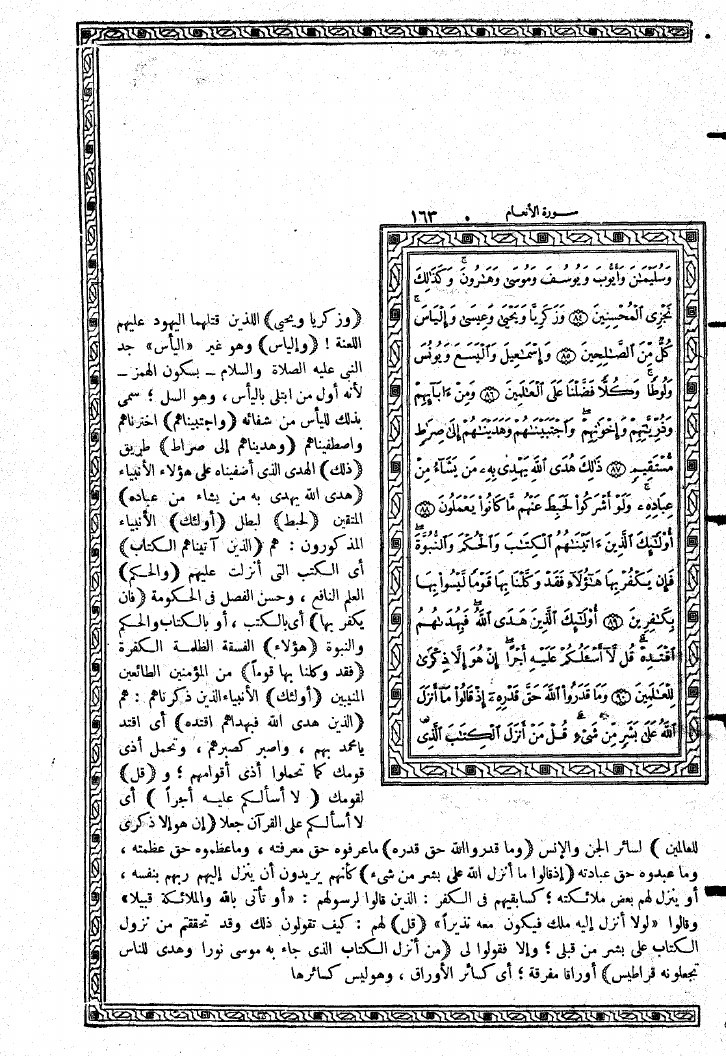 سورة الأنعام ١٦٣
وَسُلَيْمَٰنَ وَأَيُّوبَ وَيُوسُفَ وَمُوسَىٰ وَهَٰرُونَ ۚ وَكَذَٰلِكَ
نَجْزِي ٱلْمُحْسِنِينَ ٨٤ وَزَكَرِيَّا وَيَحْيَىٰ وَعِيسَىٰ وَإِلْيَاسَ ۖ
كُلٌّ مِّنَ ٱلصَّٰلِحِينَ ٨٥ وَإِسْمَٰعِيلَ وَٱلْيَسَعَ وَيُونُسَ
وَلُوطًا ۚ وَكُلًّا فَضَّلْنَا عَلَى ٱلْعَٰلَمِينَ ٨٦ وَمِنْ ءَابَآئِهِمْ
وَذُرِّيَّٰتِهِمْ وَإِخْوَٰنِهِمْ ۖ وَٱجْتَبَيْنَٰهُمْ وَهَدَيْنَٰهُمْ إِلَىٰ صِرَٰطٍ
مُّسْتَقِيمٍ ٨٧ ذَٰلِكَ هُدَى ٱللَّهِ يَهْدِي بِهِۦ مَن يَشَآءُ مِنْ
عِبَادِهِۦ ۚ وَلَوْ أَشْرَكُوا۟ لَحَبِطَ عَنْهُم مَّا كَانُوا۟ يَعْمَلُونَ ٨٨
أُو۟لَٰٓئِكَ ٱلَّذِينَ ءَاتَيْنَٰهُمُ ٱلْكِتَٰبَ وَٱلْحُكْمَ وَٱلنُّبُوَّةَ ۚ
فَإِن يَكْفُرْ بِهَا هَٰٓؤُلَآءِ فَقَدْ وَكَّلْنَا بِهَا قَوْمًا لَّيْسُوا۟ بِهَا
بِكَٰفِرِينَ ٨٩ أُو۟لَٰٓئِكَ ٱلَّذِينَ هَدَى ٱللَّهُ ۖ فَبِهُدَىٰهُمُ
ٱقْتَدِهْ ۗ قُل لَّآ أَسْـَٔلُكُمْ عَلَيْهِ أَجْرًا ۖ إِنْ هُوَ إِلَّا ذِكْرَىٰ
لِلْعَٰلَمِينَ ٩٠ وَمَا قَدَرُوا۟ ٱللَّهَ حَقَّ قَدْرِهِۦٓ إِذْ قَالُوا۟ مَآ أَنزَلَ
ٱللَّهُ عَلَىٰ بَشَرٍ مِّن شَىْءٍ ۗ قُلْ مَنْ أَنزَلَ ٱلْكِتَٰبَ ٱلَّذِى
(وزكريا ويحيى) اللذين قتلهما اليهود عليهم
اللعنة ! (وإلياس) وهو غير «اليأس» جد
النبي عليه الصلاة والسلام – بسكون الهمز –
لأنه أول من ابتلى باليأس ، وهو السل ؛ سمى
بذلك لليأس من شفائه (واجتبيناهم) اخترناهم
واصطفيناهم (وهديناهم إلى صراط) طريق
(ذلك) الهدى الذى أضفيناه على هؤلاء الأنبياء
(هدى الله يهدى به من يشاء من عباده)
المتقين (لحبط) لبطل (أولئك) الأنبياء
المذكورون : هم (الذين آتيناهم الكتاب)
أى الكتب التى أنزلت عليهم (والحكم)
العلم النافع ، وحسن الفصل فى الحكومة (فان
يكفر بها) أى بالكتب ، أو بالكتاب والحكم
والنبوة (هؤلاء) الفسقة الظلمة الكفرة
(فقد وكلنا بها قوماً) من المؤمنين الطائعين
المنيبين (أولئك) الأنبياء الذين ذكرناهم : هم
(الذين هدى الله فبهداهم اقتده) أى اقتد
يا محمد بهم ، واصبر كصبرهم ، وتحمل أذى
قومك كما تحملوا أذى أقوامهم ؛ و (قل)
لقومك ( لا أسألكم عليه أجراً ) أى
لا أسألكم على القرآن جعلا (إن هو إلا ذكرى
للعالمين ) لسائر الجن والإنس (وما قدروا الله حق قدره) ما عرفوه حق معرفته ، وما عظموه حق عظمته ،
وما عبدوه حق عبادته (إذ قالوا ما أنزل الله على بشر من شىء) كأنهم يريدون أن ينزل إليهم ربهم بنفسه ،
أو ينزل لهم بعض ملائكته ؛ كسابقيهم فى الكفر : الذين قالوا لرسولهم : «أو تأتى بالله والملائكة قبيلا»
وقالوا «لولا أنزل إليه ملك فيكون معه نذيراً» (قل) لهم : كيف تقولون ذلك وقد تحققتم من نزول
الكتاب على بشر من قبلى ؛ وإلا فقولوا لى (من أنزل الكتاب الذى جاء به موسى نورا وهدى للناس
تجعلونه قراطيس) أوراقا مفرقة ؛ أى كسائر الأوراق ، وهو ليس كسائرها